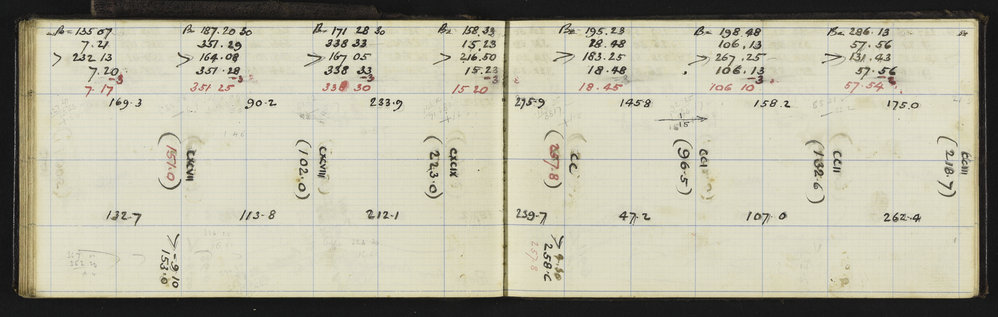 B= 135 07
7.21
> 232.13
7.20
-3
7.17
169.3
132.7
B= 187.20 30
351.29
> 164.08
351.28
-3
351 25
90.2
CXCVII
(157.0)
113.8
> -9 10
153.0
B= 171 28 30
338 33
> 167 05
338 33
-3
338 30
233.9
CXCVIII
(102.0)
212.1
B= 158.33
15.23
> 216.50
15.23
-3
15 20
CXCIX
(223.0)
B= 195.23
18.48
> 183.25
18.48
-3
18.45
275.9
145.8
CC
(257.8)
239.7
47.2
258.6
257.8
B= 198 48
106.13
> 267.25
106.13
-3
106 10
158.2
CCI
(96.5)
107.0
B= 286.13
57.56
> 131.43
57.56
-2
57.54
175.0
CCII
(132.6)
262.4
CCIII
(218.7)